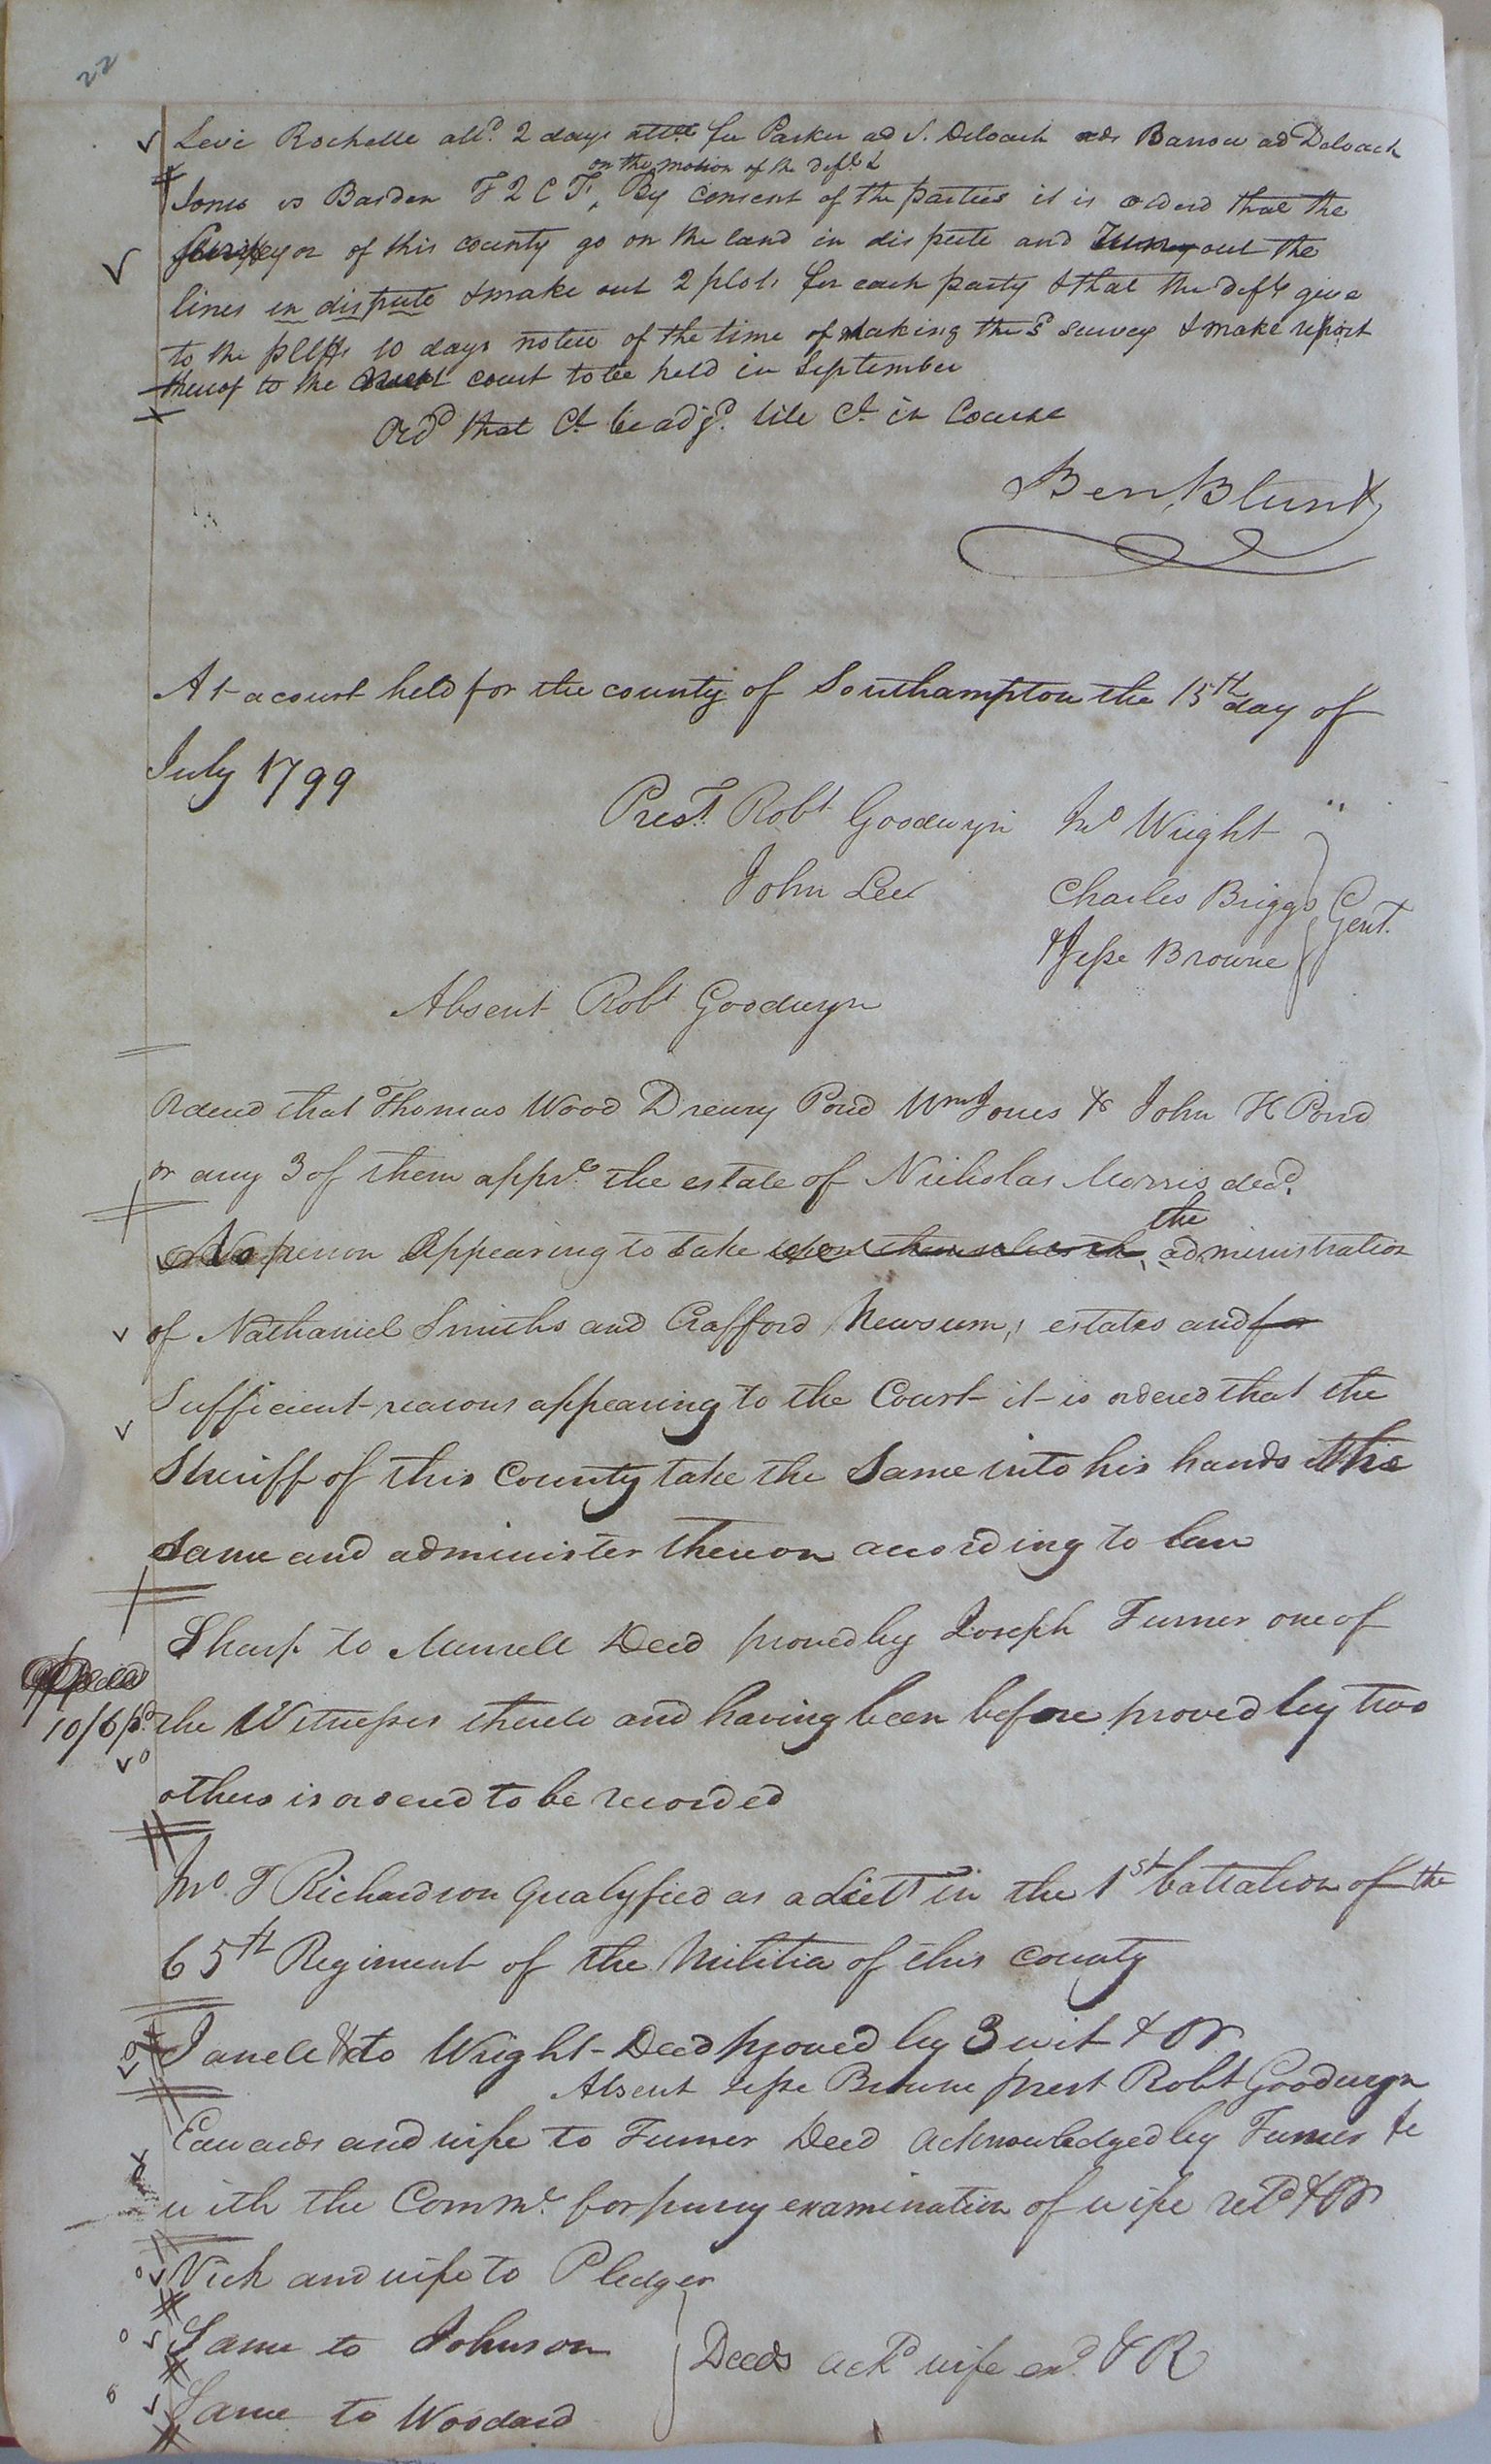 22
Levi Rochelle attd. 2 days for Parker ad S. Deloach Barrow ad Deloach
on the motion of the deft &
Jones vs Barden F 2 C F, By consent of the parties it is orderd that the
Surveyor of this county go on the land in dispute and out the
lines in dispute & make out 2 plots for each party & that the deft give
to the pltffs 10 days notice of the time of making the sd survey & make report
thereof to the court to be held in September
Ord that Ct be adjd. till Ct in Course
Ben, Blunt
At a court held for the county of Southampton the 15th day of
July 1799
Prest. Robt Goodwyn Jno Wright
John Lee Charles Briggs Gent.
& Jesse Browne
Absent Robt Goodwyn
Ordered that Thomas Wood Drewry Pond Wm Jones & John H Pond
or any 3 of them appre the estate of Nicholas Morris decd.
the
No person Appearing to take upon themselves th administration
of Nathaniel Smiths and Crafford Newsum,s estates and for
Sufficient reasons appearing to the Court it is ordered that the
Sheriff of this County take the Same into his hands the
Same and administer thereon according to law
Sharp to Murrell Deed proved by Joseph Turner one of
10/6 pd. the Witnesses thereto and having been before proved by two
others is ordered to be recorded
Jno. T Richardson qualyfied as a Lieut in the 1st battalion of the
65th Regiment of the Militia of this county
to Wright Deed proved by 3 wit & OR
Absent Jesse Browne prest Robt Goodwyn
Edwards and wife to Turner Deed acknowledged by Turner &c
with the Comme. for privy examination of wife retd & OR
Vick and wife to Pledger
Same to Johnson Deeds ackd wife exd. & R
Same to Woodard